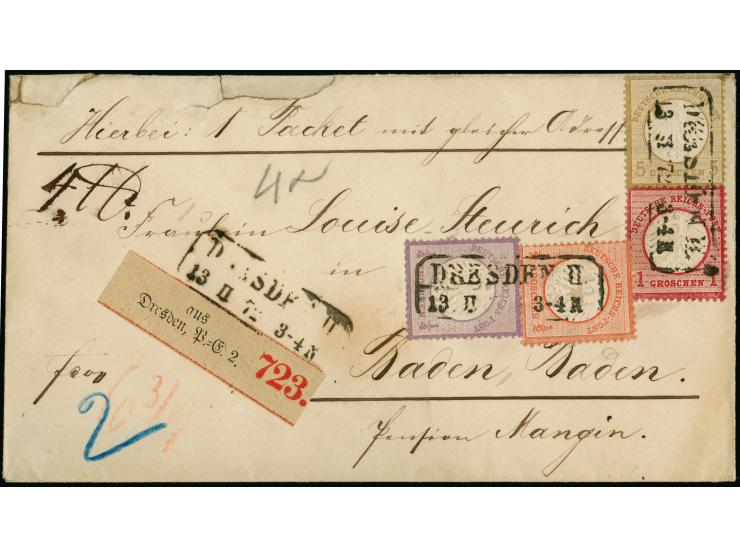 Hierbei: 1 Packet mit gleicher Adresse
DEUTSCHE REICHS-POST
5 GROSCHEN 5
4
Fräulein Louise Heurich
in
DEUTSCHE REICHS-POST
1 GROSCHEN 1
DRESDEN II
13 II 72 3-4 N
DRESDEN II
13 II 3-4 N
aus
Dresden, P.-E. 2.
723.
franco
2
Baden Baden.
Pension Mangin.